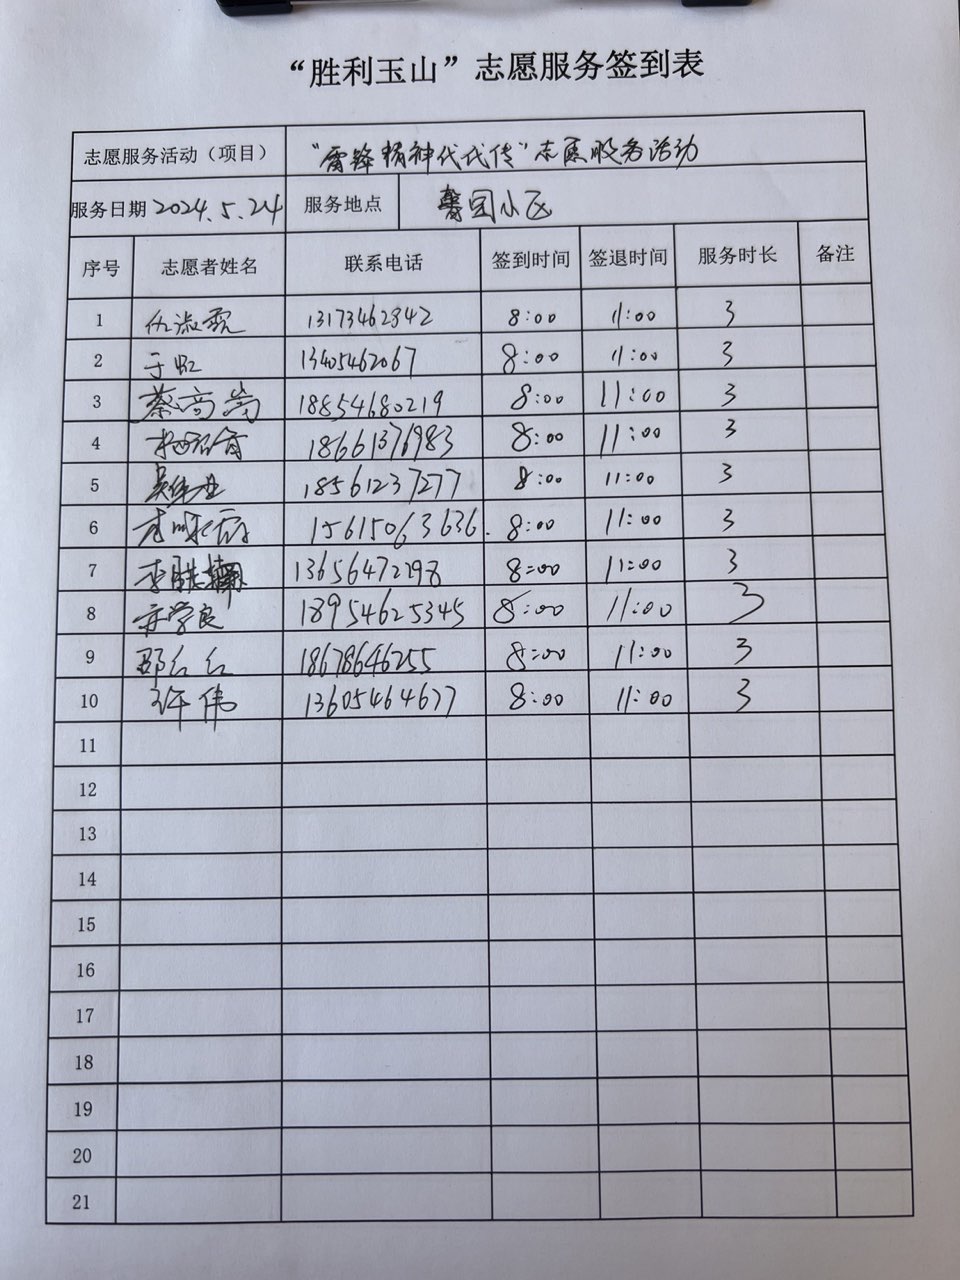 “胜利玉山”志愿服务签到表
志愿服务活动（项目） “雷锋精神代代传”志愿服务活动
服务日期 2024.5.24 服务地点 馨园小区
序号 志愿者姓名 联系电话 签到时间 签退时间 服务时长 备注
1 仇淑霞 13173462842 8:00 11:00 3
2 于虹 13405462067 8:00 11:00 3
3 蔡高尚 18854680219 8:00 11:00 3
4 18661376983 8:00 11:00 3
5 18561237277 8:00 11:00 3
6 15615063636 8:00 11:00 3
7 13656472298 8:00 11:00 3
8 18954625345 8:00 11:00 3
9 邵红红 18678646255 8:00 11:00 3
10 许伟 13605464677 8:00 11:00 3
11
12
13
14
15
16
17
18
19
20
21